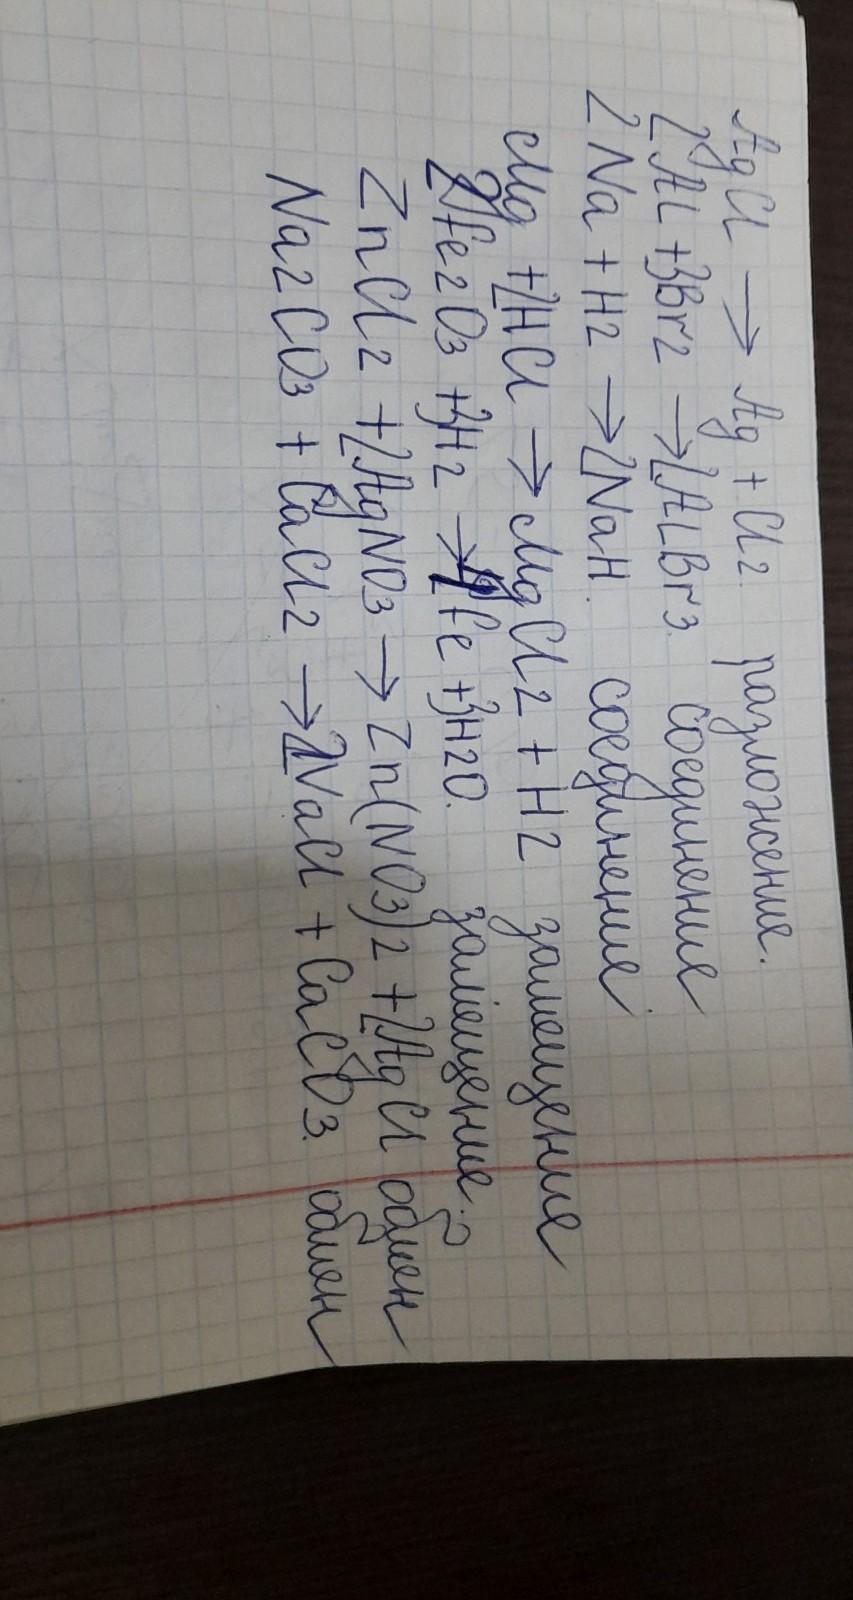 AgCl → Ag + Cl2. разложение.
2Al + 3Br2 → 2AlBr3. соединение
2Na + H2 → 2NaH. соединение
Mg + 2HCl → MgCl2 + H2 замещение
Fe2O3 + 3H2 → 2Fe + 3H2O. замещение.?
ZnCl2 + 2AgNO3 → Zn(NO3)2 + 2AgCl обмен
Na2CO3 + CaCl2 → 2NaCl + CaCO3. обмен